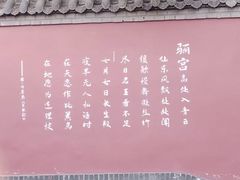 骊宫高处入青云
仙乐风飘处处闻
缓歌慢舞凝丝竹
尽日君王看不足
七月七日长生殿
夜半无人私语时
在天愿作比翼鸟
在地愿为连理枝